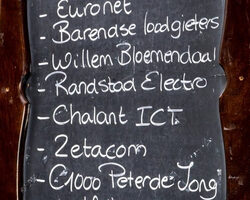 - Euronet
- Barendse loodgieters
- Willem Bloemendaal
- Randstad Electro
- Chalant ICT
- Zetacom
- C1000 Peter de Jong